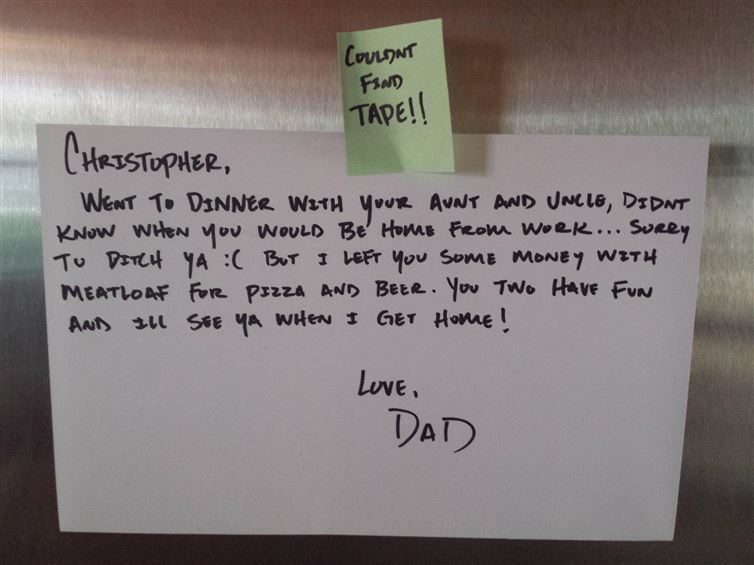 COULDNT
FIND
TAPE!!
CHRISTOPHER,
WENT TO DINNER WITH YOUR AUNT AND UNCLE, DIDNT
KNOW WHEN YOU WOULD BE HOME FROM WORK... SORRY
TO DITCH YA :( BUT I LEFT YOU SOME MONEY WITH
MEATLOAF FOR PIZZA AND BEER. YOU TWO HAVE FUN
AND ILL SEE YA WHEN I GET HOME!
LOVE,
DAD